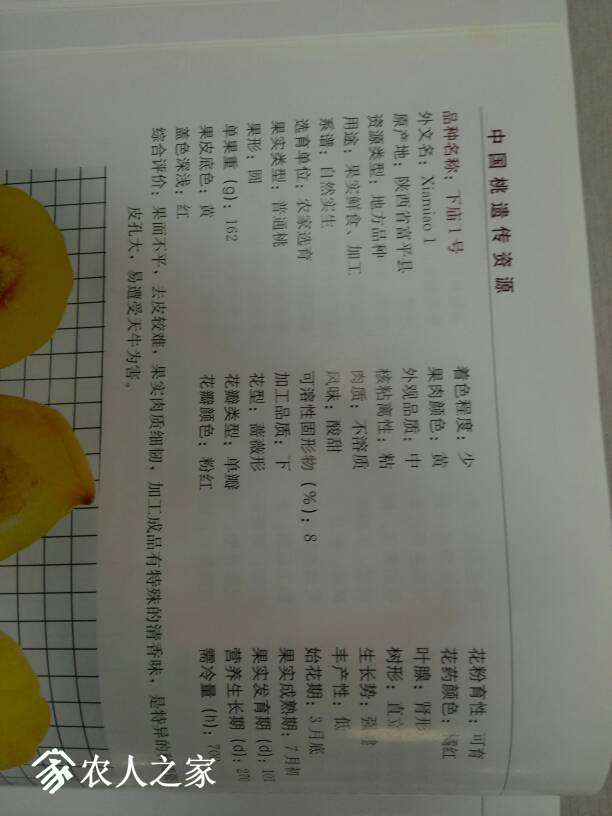 中国桃遗传资源
品种名称：下庙1号
外文名：Xiamiao 1
原产地：陕西省富平县
资源类型：地方品种
用途：果实鲜食、加工
系谱：自然实生
选育单位：农家选育
果实类型：普通桃
果形：圆
单果重（g）：162
果皮底色：黄
盖色深浅：红
着色程度：少
果肉颜色：黄
外观品质：中
核粘离性：粘
肉质：不溶质
风味：酸甜
可溶性固形物（%）：8
加工品质：下
花型：蔷薇形
花瓣类型：单瓣
花瓣颜色：粉红
花粉育性：可育
花药颜色：橘红
叶腺：肾形
树形：直立
生长势：强健
丰产性：低
始花期：3月底
果实成熟期：7月初
果实发育期（d）：101
营养生长期（d）：270
需冷量（h）：70
综合评价：果面不平，去皮较难，果实肉质细韧，加工成品有特殊的清香味，是特异的
皮孔大，易遭受天牛为害。
农人之家